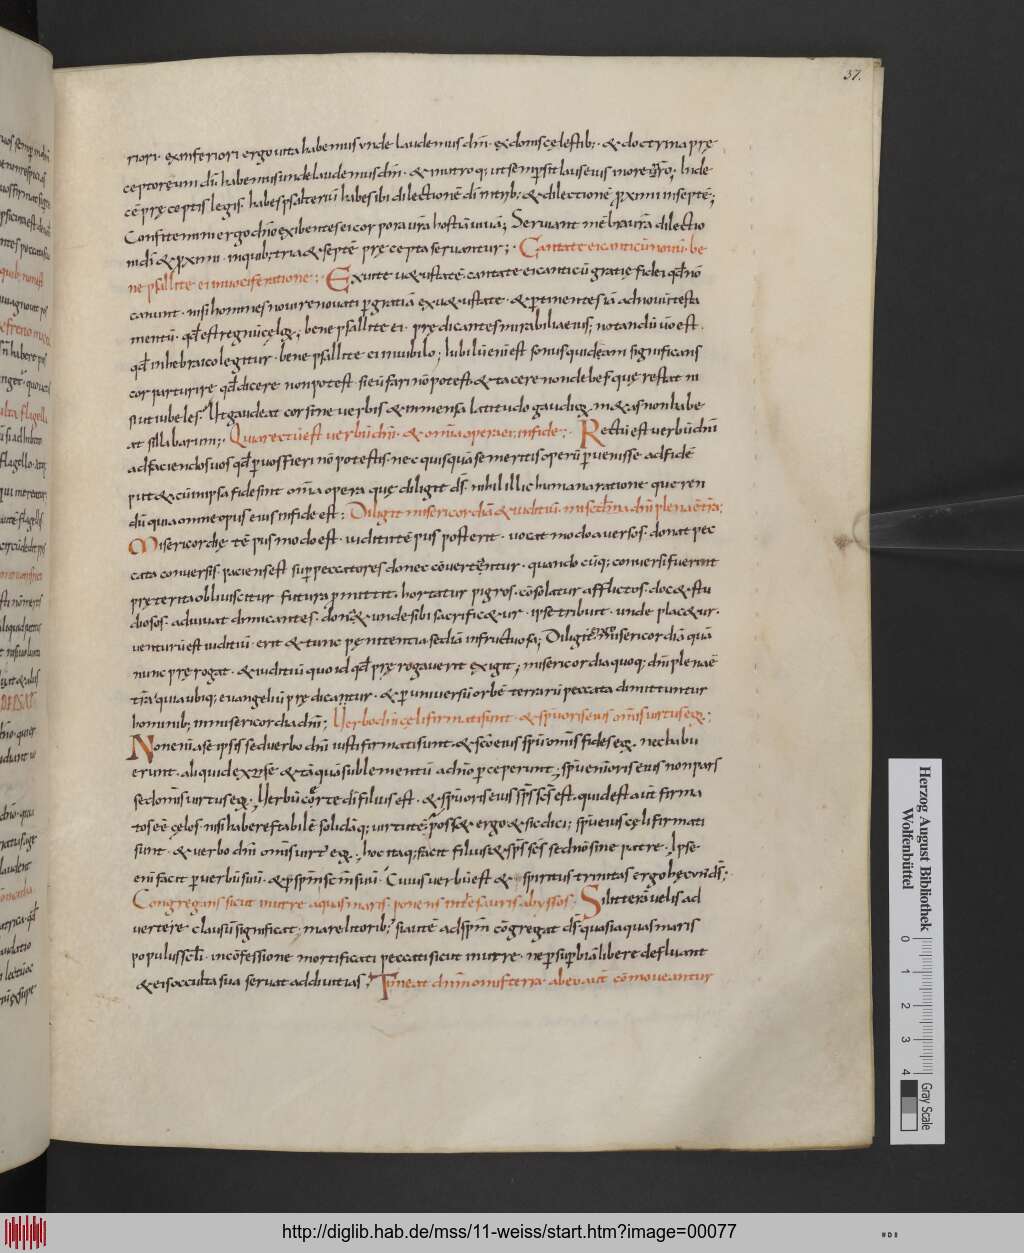 37.
riori · exinferiori ergo uita habemus unde laudemus dm̄ · ex donis cęlestib; · & doctrina pre
ceptorum dn̄i habemus unde laudemus dm̄ · & in utroq; ut semper sit laus eius in ore nr̄o; Inde
cē pręceptis legis habes psalteriū habes ibi dilectionē dī in trib; & dilectionē proximi in septē;
Confitemini ergo dn̄o exibentes ei corpora ur̄a hostiā uiuā; Seruiant mēbra ur̄a dilectio
ni dī & proximi · in quib; tria & septē pręcepta seruantur; · Cantate ei canticū nouū · be
ne psallite ei in uociferatione; · Exuite uetustatē · cantate ei canticū gratię fidei qd̄ nō
canunt · nisi homines noui renouati p gratiā ex uetustate · & ptinentes iā ad nouū testa
mentū · qd̄ est regnū cęloꝝ; bene psallite ei · prędicantes mirabilia eius; notandū uo est ·
qd̄ in hebraico legitur · bene psallite ei in iubilo; Iubilū enī est sonus quidęam significans
cor parturire qd̄ dicere non potest · si eū fari nō potest · & tacere non debes · quę restat ni
si ut iubeles · Ut gaudeat cor sine uerbis & inmensa latitudo gaudioꝝ · metas non habe
at sillabarum; · Quia rectū est uerbū dn̄i · & om̄a opera ei; in fide; · Rectū est uerbū dn̄i
ad faciendos uos qd̄ p uos fieri nō potestis · nec quisquā se meritis operū puenisse ad fidē
putet · & cū in ipsa fide sint om̄a opera quę diligit ds̄ · nihil illic humana ratione queren
dū quia omne opus eius in fide est; Diligit misericordiā & iudiciū · misc̄dia dn̄i plena ē tr̄a;
Misericordię tēpus modo est · iudicii tēpus post erit · uocat modo auersos · donat pec
cata conuersis · paciens est sup peccatores donec cōuertantur · quando cūq; conuersi fuerint
pręterita obliuiscitur futura pmittit · hortatur pigros · cōsolatur afflictos · docet stu
diosos · adiuuat dimicantes · donet unde sibi sacrificetur · ipse tribuit · unde placetur ·
uenturū est iudiciū · erit & tunc pęnitentia sed iā infructuosa; Diligit misericordiā quā
nunc prę rogat · & iudiciū quo id qd̄ prę rogauerit exigit; misericordia quoq; dn̄i plena ē
tr̄a quia ubiq; euangeliū prędicantur · & p uniuersū orbē terrarū peccata dimittuntur
hominib; in misericordia dn̄i; Uerbo dn̄i cęli firmati sunt · & spū oris eius om̄is uirtus eoꝝ;
Non enī a se ipsis sed uerbo dn̄i iusti firmati sunt · & sc̄o eius spū om̄is fides eoꝝ · nec habu
erunt · aliquid ex se & tāquā sublementū a dn̄o pceperunt; spū enī oris eius non pars
sed om̄is uirtus eoꝝ · Uerbū certe dī filius est · & spū oris eius sp̄s sc̄s est · quid est aut̄ firma
tos eē cęlos · nisi habere stabilē solidāq; uirtutē; posset ergo & sic dici; spū eius cęli firmati
sunt · & uerbo dn̄i om̄is uirt' eoꝝ · hoc itaq; facit filius & sp̄s sc̄s sed nō sine patre · Ipse
enī facit p uerbū suū · & p spm̄ sc̄m suū · Cuius uerbū est & spiritus trinitas ergo hęc un' ds̄;
Congregans sicut in utre aquas maris · ponens in thesauris abyssos; Si litterā uelis ad
uertere clausū significat; mare litorib; si aut̄e ad spm̄ cōgregat ds̄ quasi aquas maris
populus sc̄li · in cōfessione mortificati peccati sicut in utre · ne p supbiā libere defluant
& ei s occulta sua seruat ad diuitias; Timeat dn̄m omis terra · ab eo aut̄ cōmoueantur
Herzog August Bibliothek
Wolfenbüttel
0 1 2 3 4
Gray Scale
http://diglib.hab.de/mss/11-weiss/start.htm?image=00077